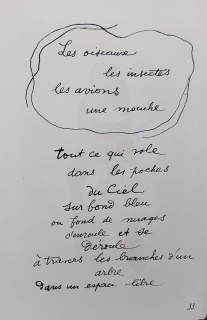 Les oiseaux
les insectes
les avions
une mouche
tout ce qui vole
dans les poches
du Ciel
sur fond bleu
ou fond de nuages
s'enroule et se
déroule
à travers les branches d'un
arbre
dans un espace libre
33